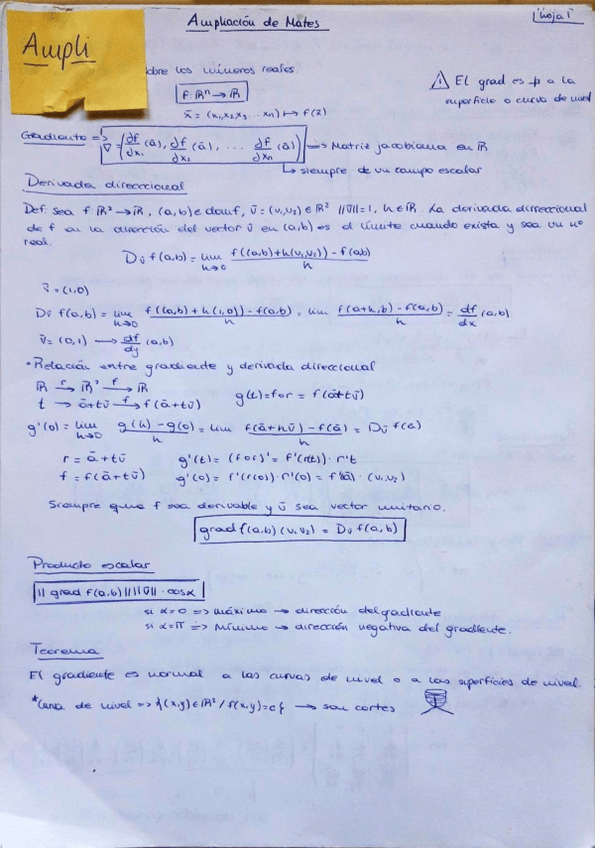 Ampliación de Mates
Hoja 1
Ampli
sobre los números reales.
f: ℝⁿ → ℝ
x̄ = (x₁, x₂, x₃ ... xn) ↦ f(x̄)
⚠ El grad es ⊥ a la
superficie o curva de nivel
Gradiente => ∇ = (df/dx₁ (ā), df/dx₂ (ā), ... df/dxn (ā)) → Matriz jacobiana en ℝ
↳ siempre de un campo escalar
Derivada direccional
Def: sea f: ℝ² → ℝ, (a,b) ∈ domf, v̄ = (v₁,v₂) ∈ ℝ² ||v̄||=1, h ∈ ℝ. La derivada direccional
de f en la dirección del vector v̄ en (a,b) es el límite cuando exista y sea un nº
real.
Dv̄ f(a,b) = lim h→0 f((a,b)+h(v₁,v₂)) - f(a,b) / h
v̄ = (1,0)
Dv̄ f(a,b) = lim h→0 f((a,b)+h(1,0)) - f(a,b) / h = lim f(a+h,b) - f(a,b) / h = df/dx (a,b)
v̄ = (0,1) → df/dy (a,b)
• Relación entre gradiente y derivada direccional
ℝ –r→ ℝ² –f→ ℝ
t → ā+tv̄ –f→ f(ā+tv̄)
g(t) = f∘r = f(ā+tv̄)
g'(0) = lim h→0 g(h) - g(0) / h = lim f(ā+hv̄) - f(ā) / h = Dv̄ f(ā)
r = ā+tv̄ g'(t) = (f∘r)' = f'(r(t)) · r't
f = f(ā+tv̄) g'(0) = f'(r(0)) · r'(0) = f'(ā) · (v₁,v₂)
Siempre que f sea derivable y v̄ sea vector unitario.
grad f(a,b) (v₁,v₂) = Dv̄ f(a,b)
Producto escalar
|| grad f(a,b) || ||v̄|| · cosα
si α=0 => máximo → dirección del gradiente
si α=π => Mínimo → dirección negativa del gradiente.
Teorema
El gradiente es normal a las curvas de nivel o a las superficies de nivel.
*Curva de nivel => {(x,y) ∈ ℝ² / f(x,y)=c} → son cortes